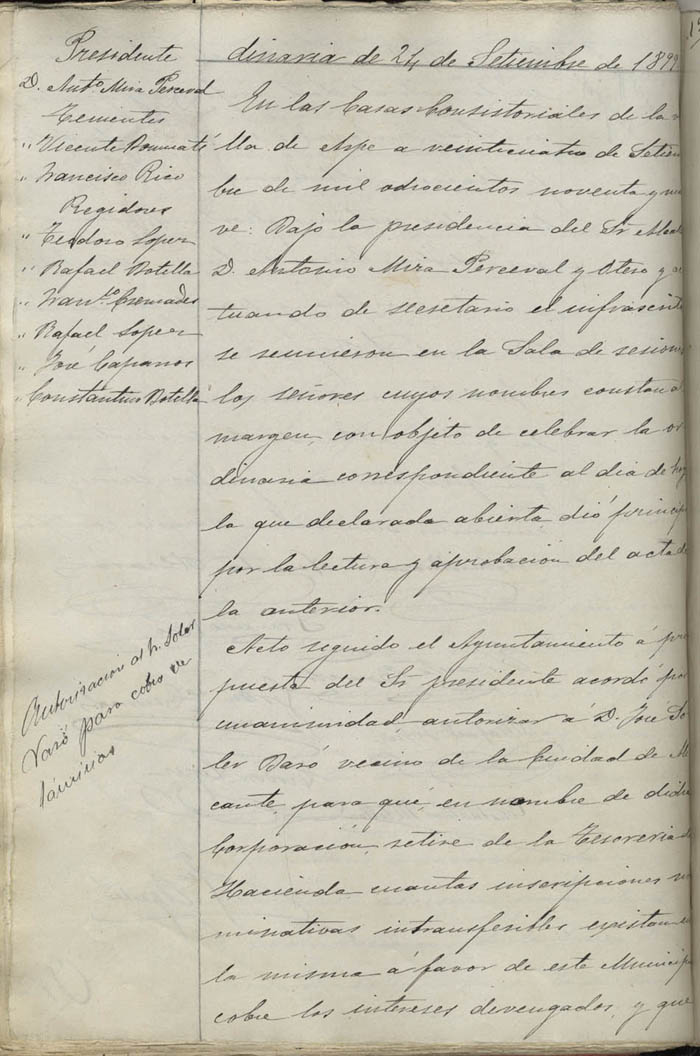 Presidente
D. Anto. Mira Perceval
Tenientes
" Vicente
" Francisco Rico
Regidores
" Teodoro Soper
" Rafael Botella
" Franco. Cremades
" Rafael Soper
" José
" Constantino Botella
dinaria de 24 de Setiembre de 1899
En las Casas Consistoriales de la v
lla de Aspe a veinticuatro de Setiem
bre de mil ochocientos noventa y nue
ve: Bajo la presidencia del Sr. Alcal
D. Antonio Mira Perceval y Otero y ac
tuando de secretario el infrascrito
se reunieron en la Sala de sesiones
los señores cuyos nombres constan al
margen, con objeto de celebrar la or
dinaria correspondiente al dia de hoy
la que declarada abierta, dió princip
por la lectura y aprobacion del acta de
la anterior.
Acto seguido el Ayuntamiento á pro
puesta del Sr. presidente acordó por
unanimidad, autorizar á D. José So
ler Baró vecino de la Ciudad de Ali
cante, para que, en nombre de dicha
Corporación, retire de la Tesoreria de
Hacienda cuantas inscripciones no
minativas intransferibles, existan en
la misma á favor de este Municip
cobre los intereses devengados, y que
Autorizacion al Sr. Soler
Varó para cobro de
láminas